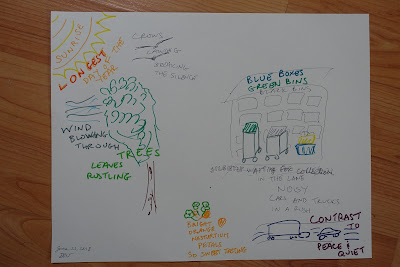 SUNRISE
LONGEST
DAY OF THE
YEAR
CROWS
CAWING
BREAKING
THE SILENCE
WIND
BLOWING
THROUGH
TREES
LEAVES
RUSTLING
BLUE BOXES
GREEN BINS
BLACK BINS
WAITING FOR COLLECTION
IN THE LANE
NOISY
CARS AND TRUCKS
IN A RUSH
CONTRAST
TO
PEACE &
QUIET
BRIGHT
ORANGE
NASTURTIUM
PETALS
SO SWEET TASTING